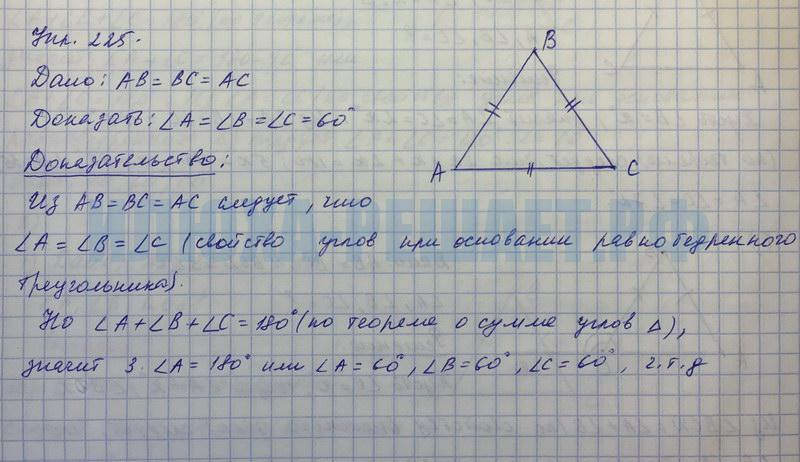 Упр. 225.
B
Дано: AB = BC = AC
Доказать: ∠A = ∠B = ∠C = 60°
Доказательство:
A C
Из AB = BC = AC следует, что
∠A = ∠B = ∠C (свойство углов при основании равнобедренного
треугольника).
Но ∠A + ∠B + ∠C = 180° (по теореме о сумме углов Δ),
значит 3 · ∠A = 180° или ∠A = 60°, ∠B = 60°, ∠C = 60°, ч.т.д